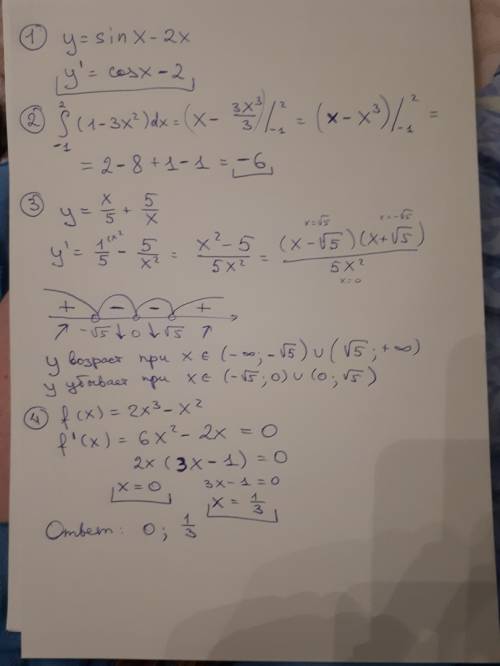 1 y = sinx - 2x
y' = cosx - 2
2 ∫₋₁² (1-3x²)dx = (x - 3x³/3)|₋₁² = (x - x³)|₋₁² =
= 2-8+1-1 = -6
3 y = x/5 + 5/x
x=√5 x=-√5
y' = 1^(x²)/5 - 5/x² = (x²-5)/5x² = (x-√5)(x+√5)/5x²
x=0
+ - - +
↗ -√5 ↓ 0 ↓ √5 ↗
y возраст при x ∈ (-∞; -√5) ∪ (√5; +∞)
y убывает при x ∈ (-√5; 0) ∪ (0; √5)
4 f(x) = 2x³ - x²
f'(x) = 6x² - 2x = 0
2x(3x-1) = 0
x=0 3x-1=0
x = 1/3
Ответ: 0; 1/3